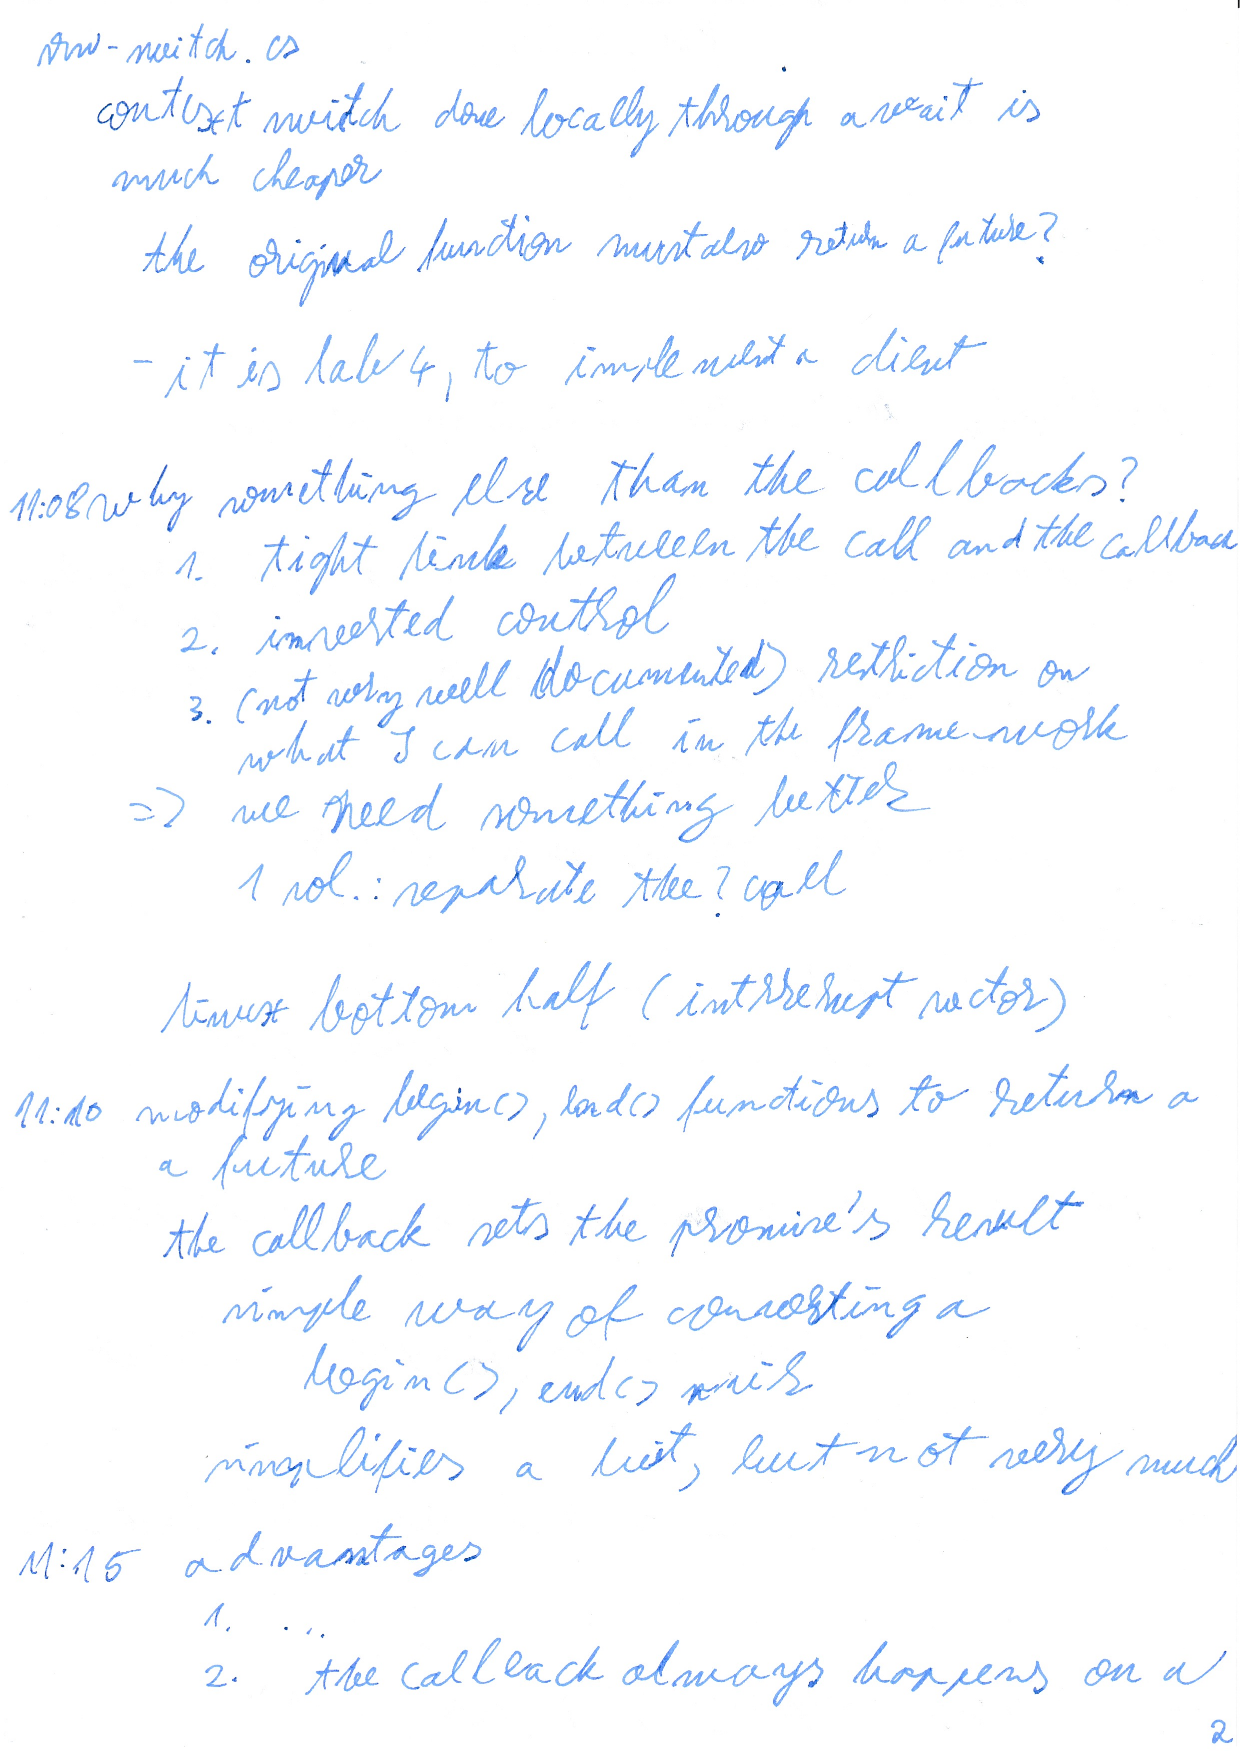 sw-switch.cs
context switch done locally through await is
much cheaper
the original function must also return a future?
- it is lab 4, to implement a client
11:08 why something else than the callbacks?
1. tight link between the call and the callback
2. inverted control
3. (not very well documented) restriction on
what I can call in the framework
=> we need something better
1 sol.: separate the ? call
linux bottom half (interrupt vector)
11:10 modifying begin(), end() functions to return a
a future
the callback sets the promise's result
simple way of converting a
begin(), end() pair
simplifies a bit, but not very much
11:15 advantages
1. ...
2. the callback always happens on a
2